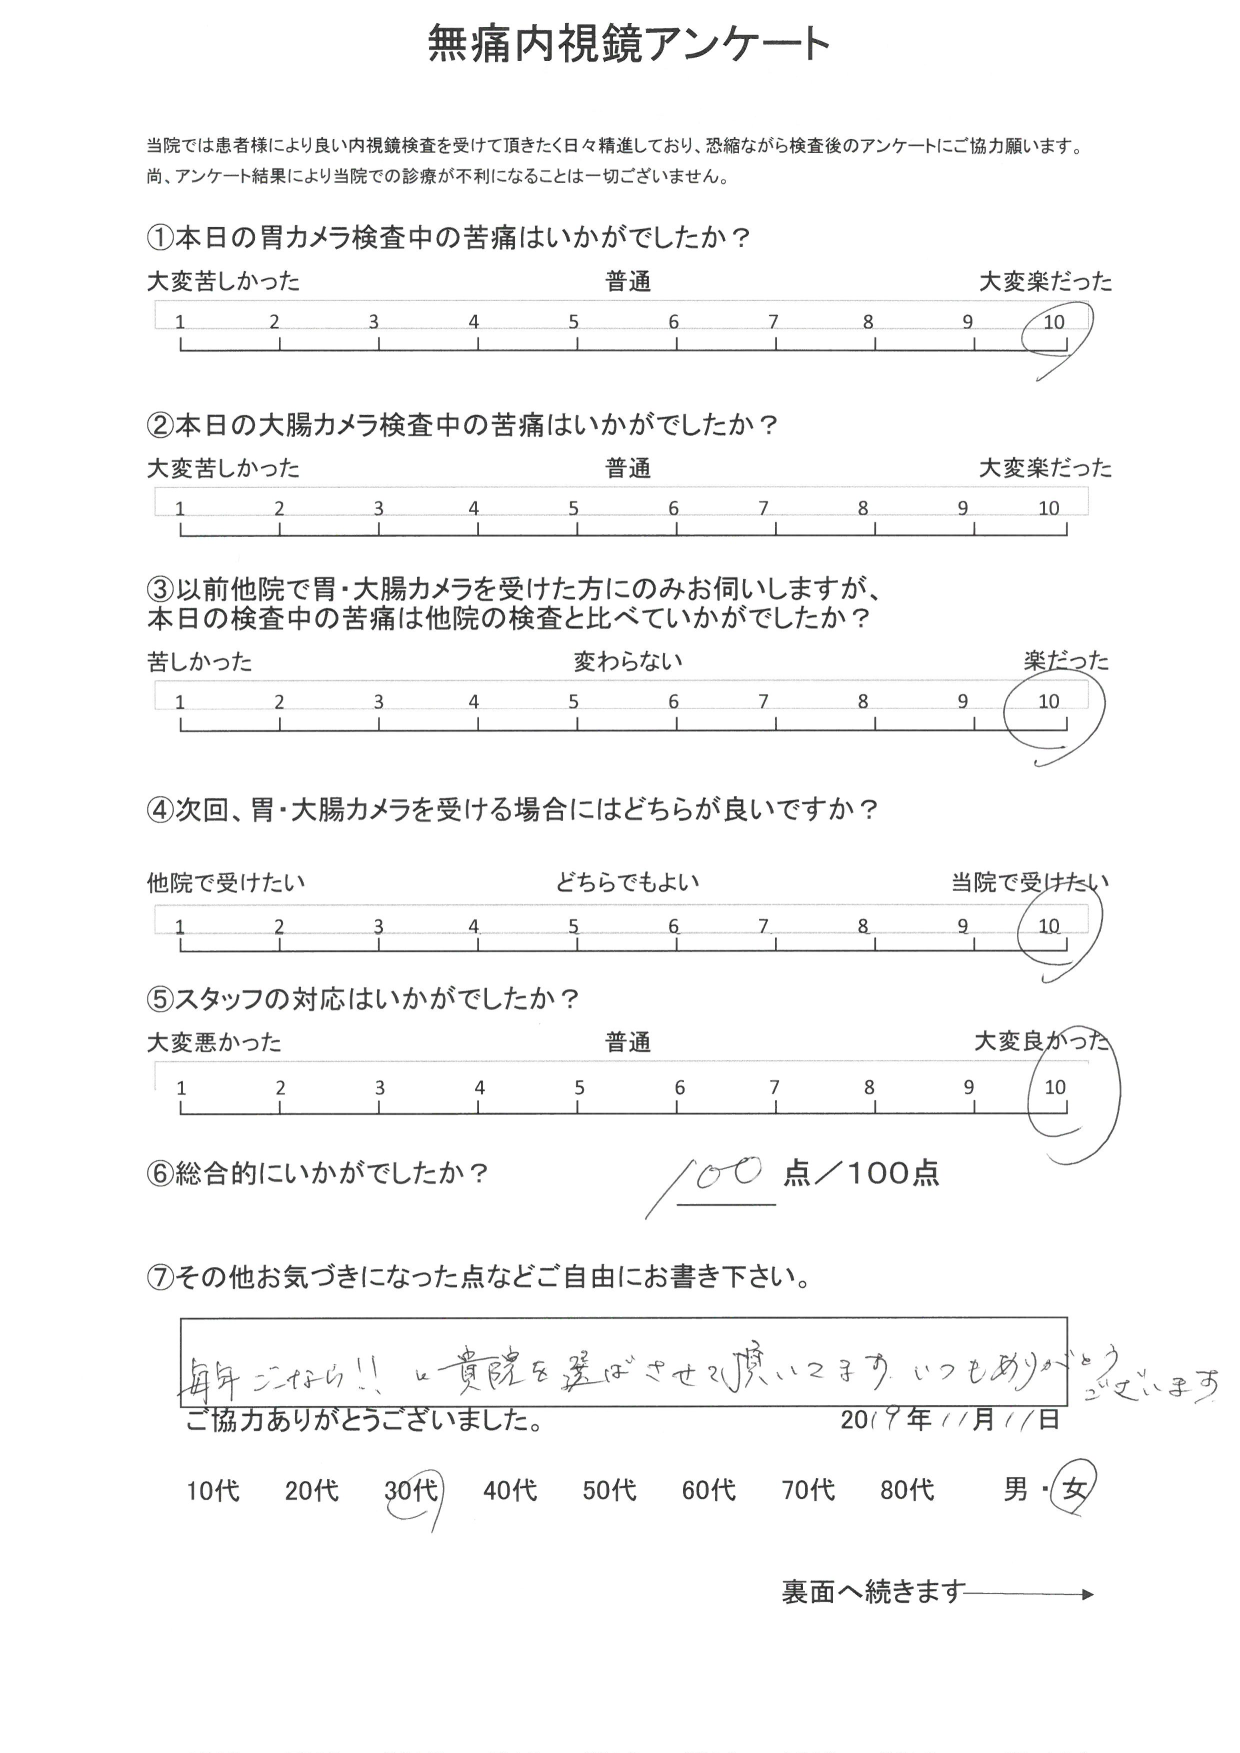 無痛内視鏡アンケート
当院では患者様により良い内視鏡検査を受けて頂きたく日々精進しており、恐縮ながら検査後のアンケートにご協力願います。
尚、アンケート結果により当院での診療が不利になることは一切ございません。
①本日の胃カメラ検査中の苦痛はいかがでしたか？
大変苦しかった 普通 大変楽だった
1 2 3 4 5 6 7 8 9 10
②本日の大腸カメラ検査中の苦痛はいかがでしたか？
大変苦しかった 普通 大変楽だった
1 2 3 4 5 6 7 8 9 10
③以前他院で胃・大腸カメラを受けた方にのみお伺いしますが、
本日の検査中の苦痛は他院の検査と比べていかがでしたか？
苦しかった 変わらない 楽だった
1 2 3 4 5 6 7 8 9 10
④次回、胃・大腸カメラを受ける場合にはどちらが良いですか？
他院で受けたい どちらでもよい 当院で受けたい
1 2 3 4 5 6 7 8 9 10
⑤スタッフの対応はいかがでしたか？
大変悪かった 普通 大変良かった
1 2 3 4 5 6 7 8 9 10
⑥総合的にいかがでしたか？ 100 点／100点
⑦その他お気づきになった点などご自由にお書き下さい。
毎年ここなら!! と貴院を選ばさせて頂いてます。いつもありがとう
ございます
ご協力ありがとうございました。 2019年11月11日
10代 20代 30代 40代 50代 60代 70代 80代 男・女
裏面へ続きます